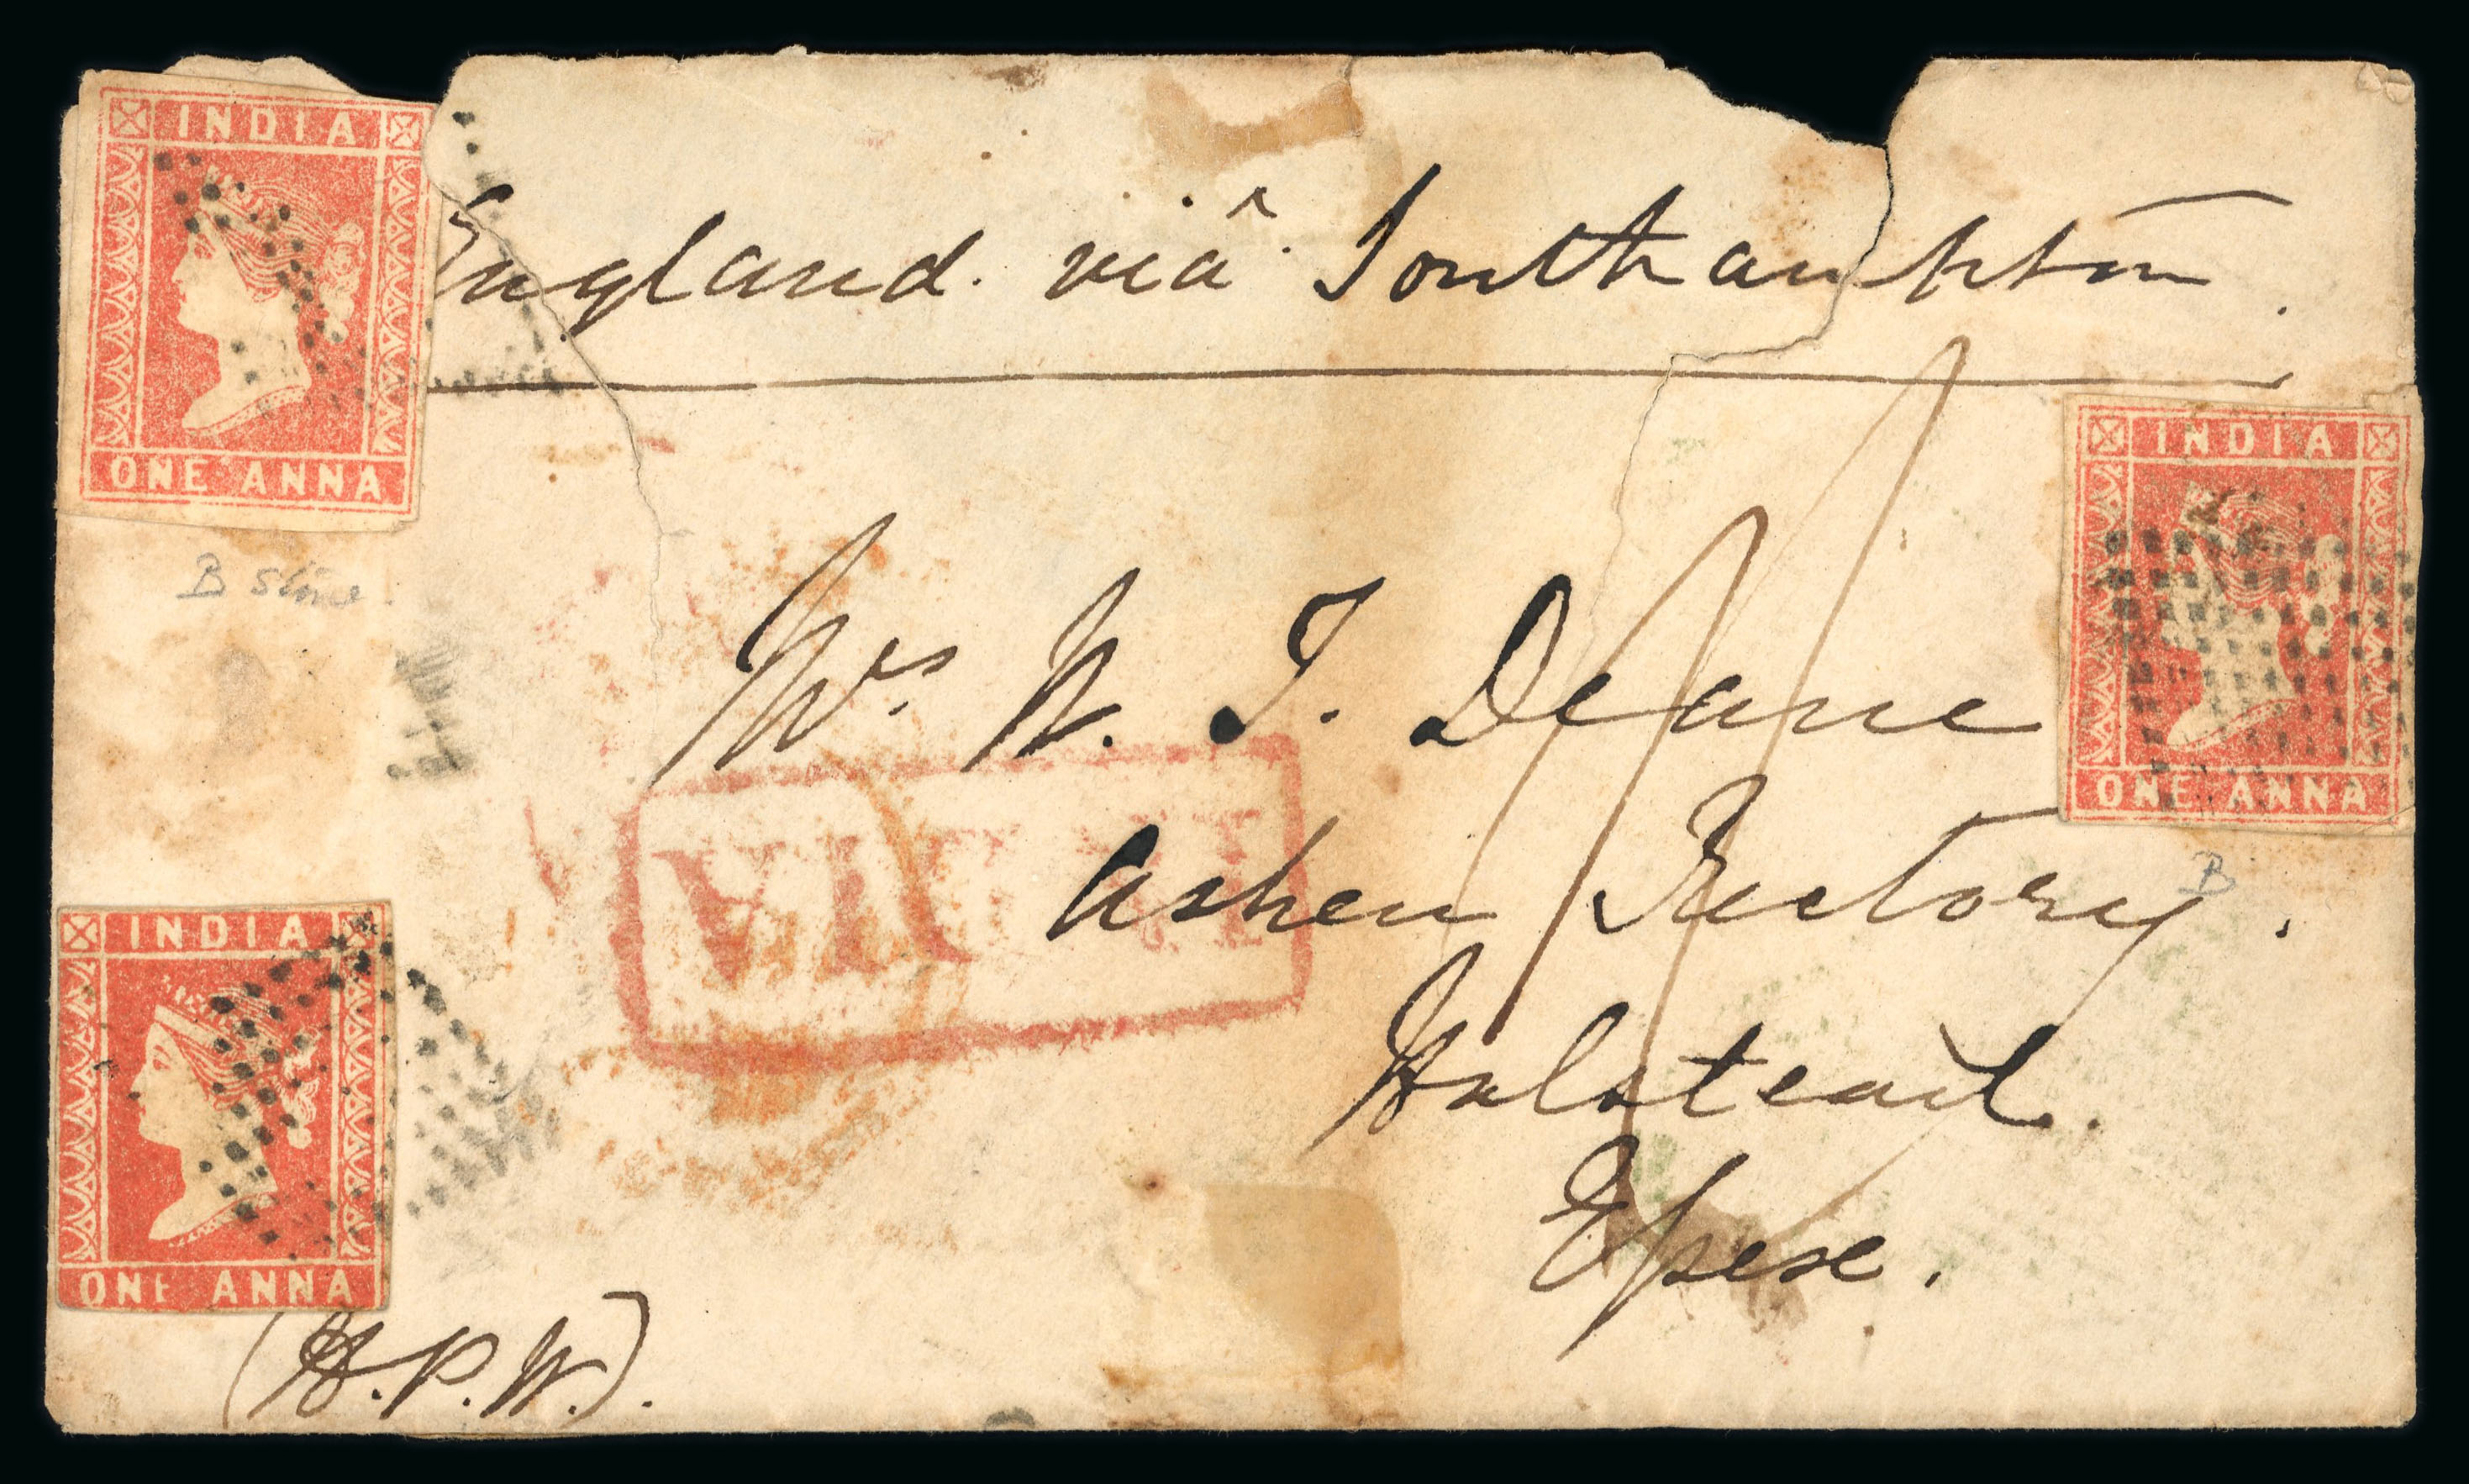 INDIA
ONE ANNA
England. viâ Southampton.
B stone.
INDIA
ONE ANNA
B
Mrs W. J. Deane
Ashen Rectory.
Halstead.
Essex.
INDIA
INDIA
ONE ANNA
(H.P.W.).